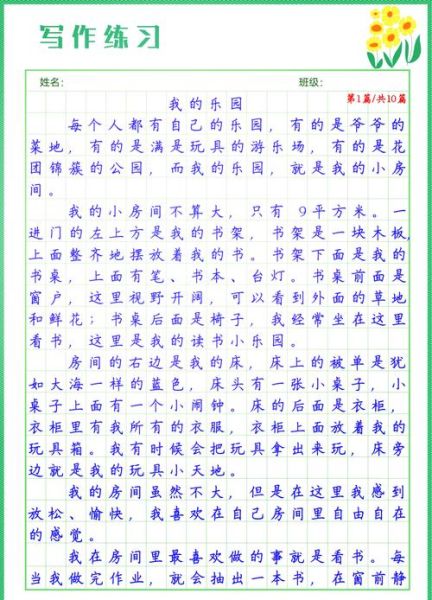 写作练习
姓名：
班级：
第1篇/共10篇
我的乐园
每个人都有自己的乐园，有的是爷爷的
菜地，有的是满是玩具的游乐场，有的是花
团锦簇的公园，而我的乐园，就是我的小房
间。
我的小房间不算大，只有9平方米。一
进门的左上方是我的书架，书架是一块木板，
上面整齐地摆放着我的书。书架下面是我的
书桌，上面有笔、书本、台灯。书桌前面是
窗户，这里视野开阔，可以看到外面的草地
和鲜花；书桌后面是椅子，我经常坐在这里
看书，这里是我的读书小乐园。
房间的右边是我的床，床上的被单是犹
如大海一样的蓝色，床头有一张小桌子，小
桌子上面有一个小闹钟。床的后面是衣柜，
衣柜里有我所有的衣服，衣柜上面放着我的
玩具箱。我有时候会把玩具拿出来玩，床旁
边就是我的玩具小天地。
我的房间虽然不大，但是在这里我感到
放松、愉快，我喜欢在自己房间里自由自在
的感觉。
我在房间里最喜欢做的事就是看书。每
当我做完作业，就会抽出一本书，在窗前静